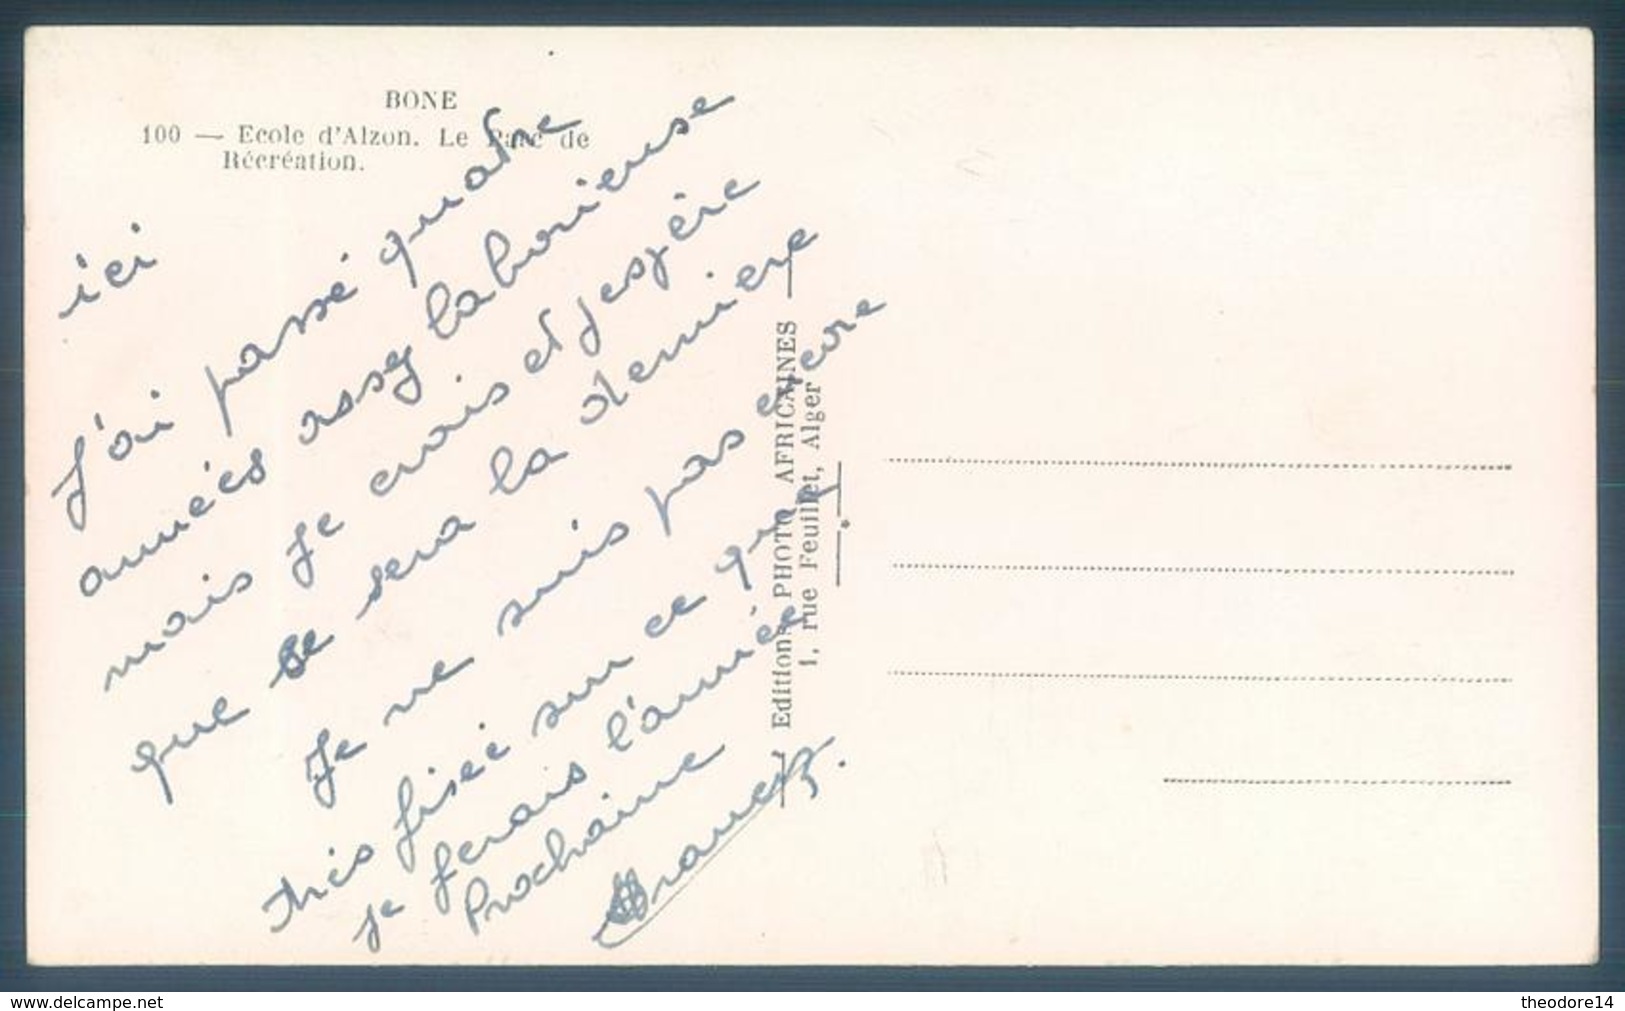 BONE
100 — Ecole d'Alzon. Le Parc de
Récréation.
ici
J'ai passé quatre
années assez laborieuse
mais je crois et j'espère
que se sera la derniere
Je ne suis pas encore
très fixée sur ce que
je ferais l'année
Prochaine
Editions PHOTO AFRICAINES
1, rue Feuillet, Alger
www.delcampe.net
theodore14